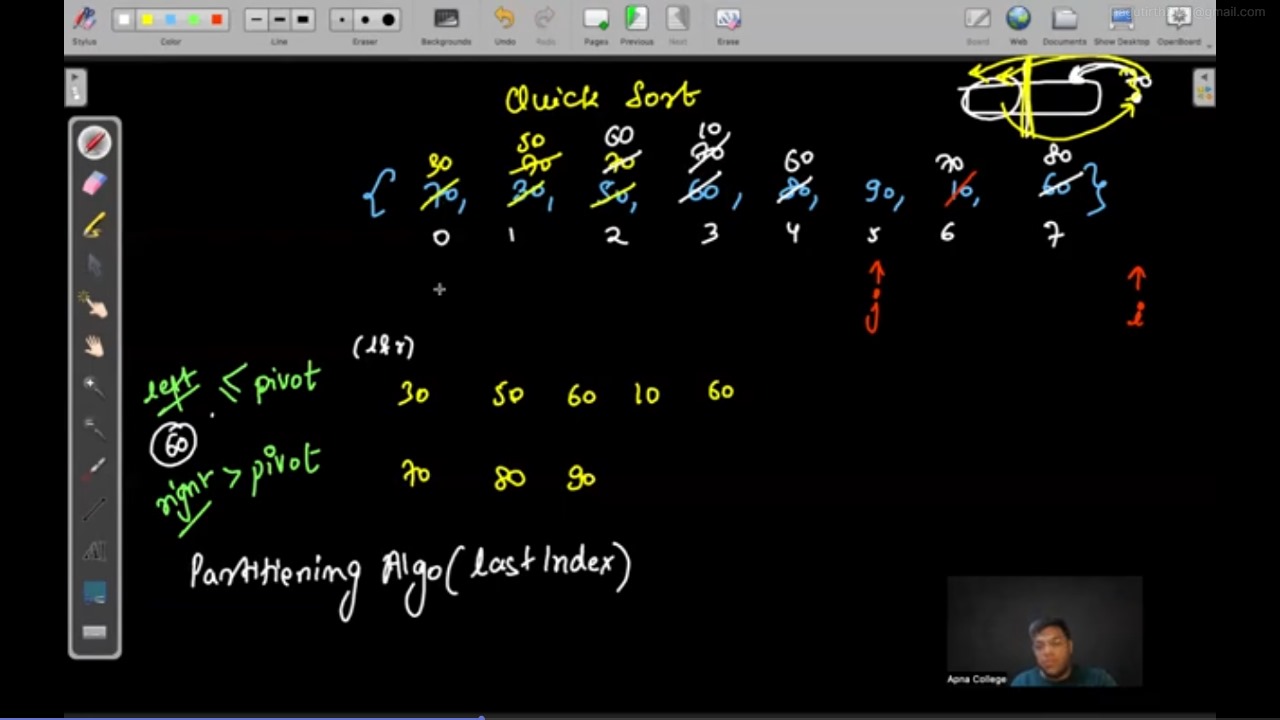 @gmail.com
Stylus Color Line Eraser Backgrounds Undo Redo Pages Previous Next Erase Board Web Documents Show Desktop OpenBoard
Quick Sort
50 60 10
30 70 70 70 60 70 80
{ 70, 30, 50, 60, 80, 90, 10, 60 }
0 1 2 3 4 5 6 7
j i
(l & r)
left ≤ pivot 30 50 60 10 60
60
right > pivot 70 80 90
Partitiening Algo(last Index)
Apna College